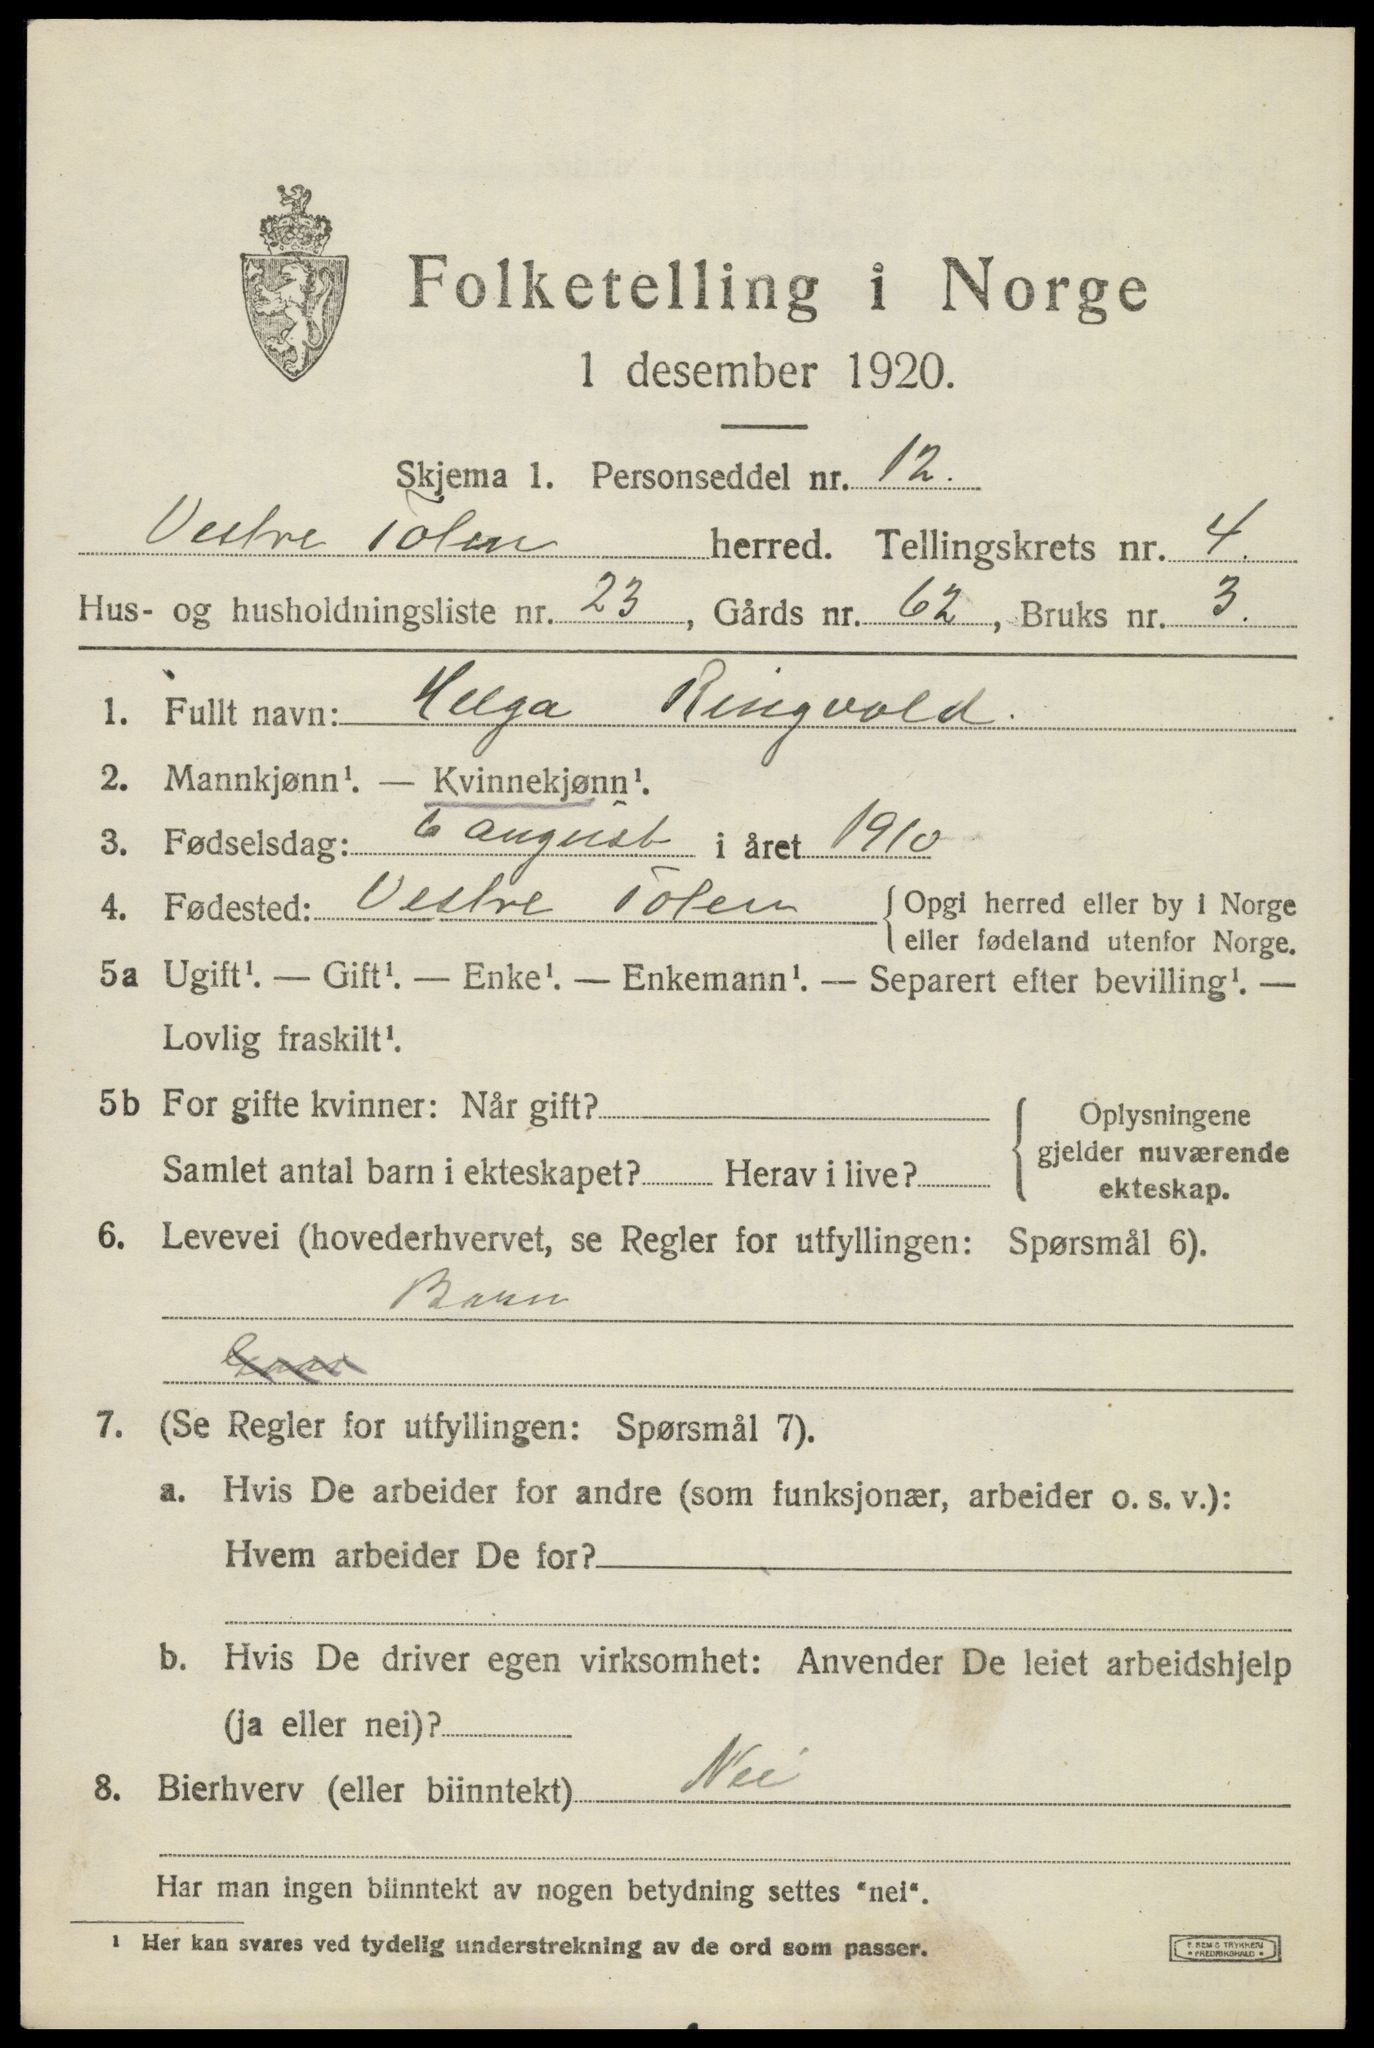 Folketelling i Norge
1 desember 1920.
Skjema 1. Personseddel nr. 12.
Vestre Toten herred. Tellingskrets nr. 4.
Hus- og husholdningsliste nr. 23, Gårds nr. 62, Bruks nr. 3.
1. Fullt navn: Helga Ringvold.
2. Mannkjønn¹. — Kvinnekjønn¹.
3. Fødselsdag: 6 august i året 1910
4. Fødested: Vestre Toten { Opgi herred eller by i Norge
eller fødeland utenfor Norge.
5a Ugift¹. — Gift¹. — Enke¹. — Enkemann¹. — Separert efter bevilling¹. —
Lovlig fraskilt¹.
5b For gifte kvinner: Når gift? { Oplysningene
gjelder nuværende
Samlet antal barn i ekteskapet? Herav i live?
ekteskap.
6. Levevei (hovederhvervet, se Regler for utfyllingen: Spørsmål 6).
Barn
7. (Se Regler for utfyllingen: Spørsmål 7).
a. Hvis De arbeider for andre (som funksjonær, arbeider o. s. v.):
Hvem arbeider De for?
b. Hvis De driver egen virksomhet: Anvender De leiet arbeidshjelp
(ja eller nei)?
8. Bierhverv (eller biinntekt) Nei
Har man ingen biinntekt av nogen betydning settes "nei".
¹ Her kan svares ved tydelig understrekning av de ord som passer.
TRYKKERI
FREDRIKSHALD